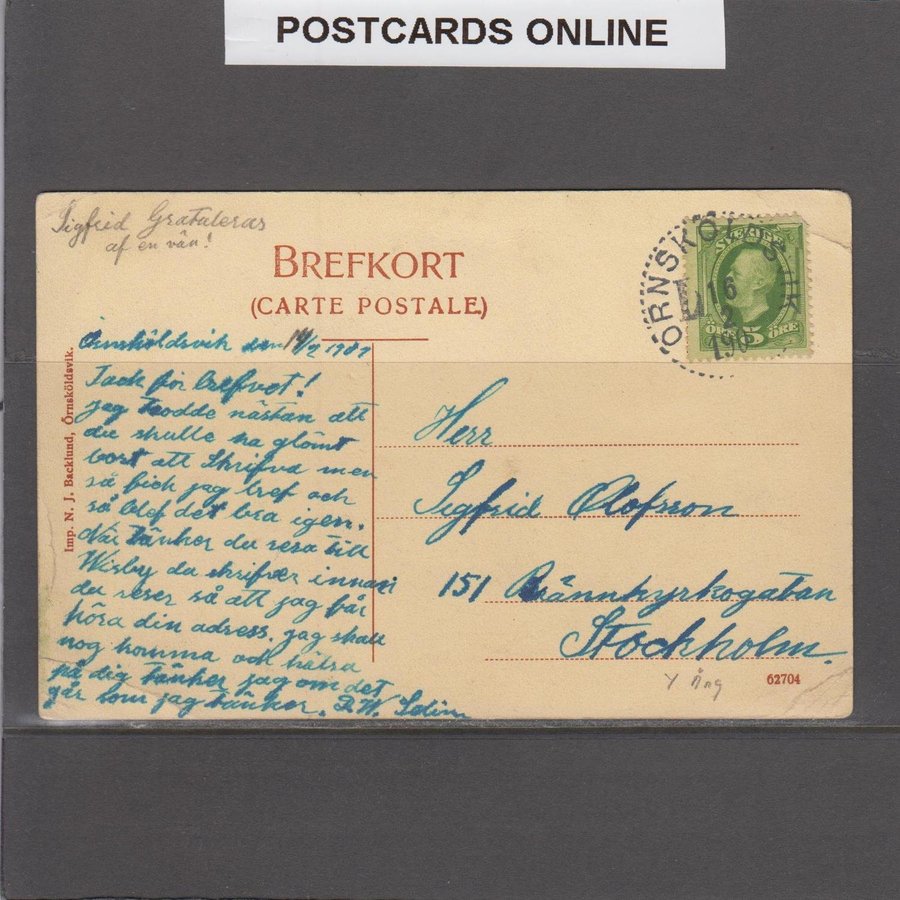 POSTCARDS ONLINE
Sigfrid Gratuleras
af en vän!
BREFKORT
(CARTE POSTALE)
ÖRNSKÖL VIK
L
16
2
190
SVERIGE
ÖRE 5 ÖRE
Imp. N. J. Backlund, Örnsköldsvik.
Örnsköldsvik den 14/2 1907
Tack för brefvet!
jag trodde nästan att
du skulle ha glömt
bort att Skrifva men
så fick jag bref och
så blef det bra igen.
När tänker du resa till
Wisby du skrifver innan
du reser så att jag får
höra din adress. jag skall
nog komma och hälsa
på dig tänker jag om det
går som jag tänker.
Herr
Sigfrid Olofsson
151 Brännkyrkogatan
Stockholm.
Y Ång
62704